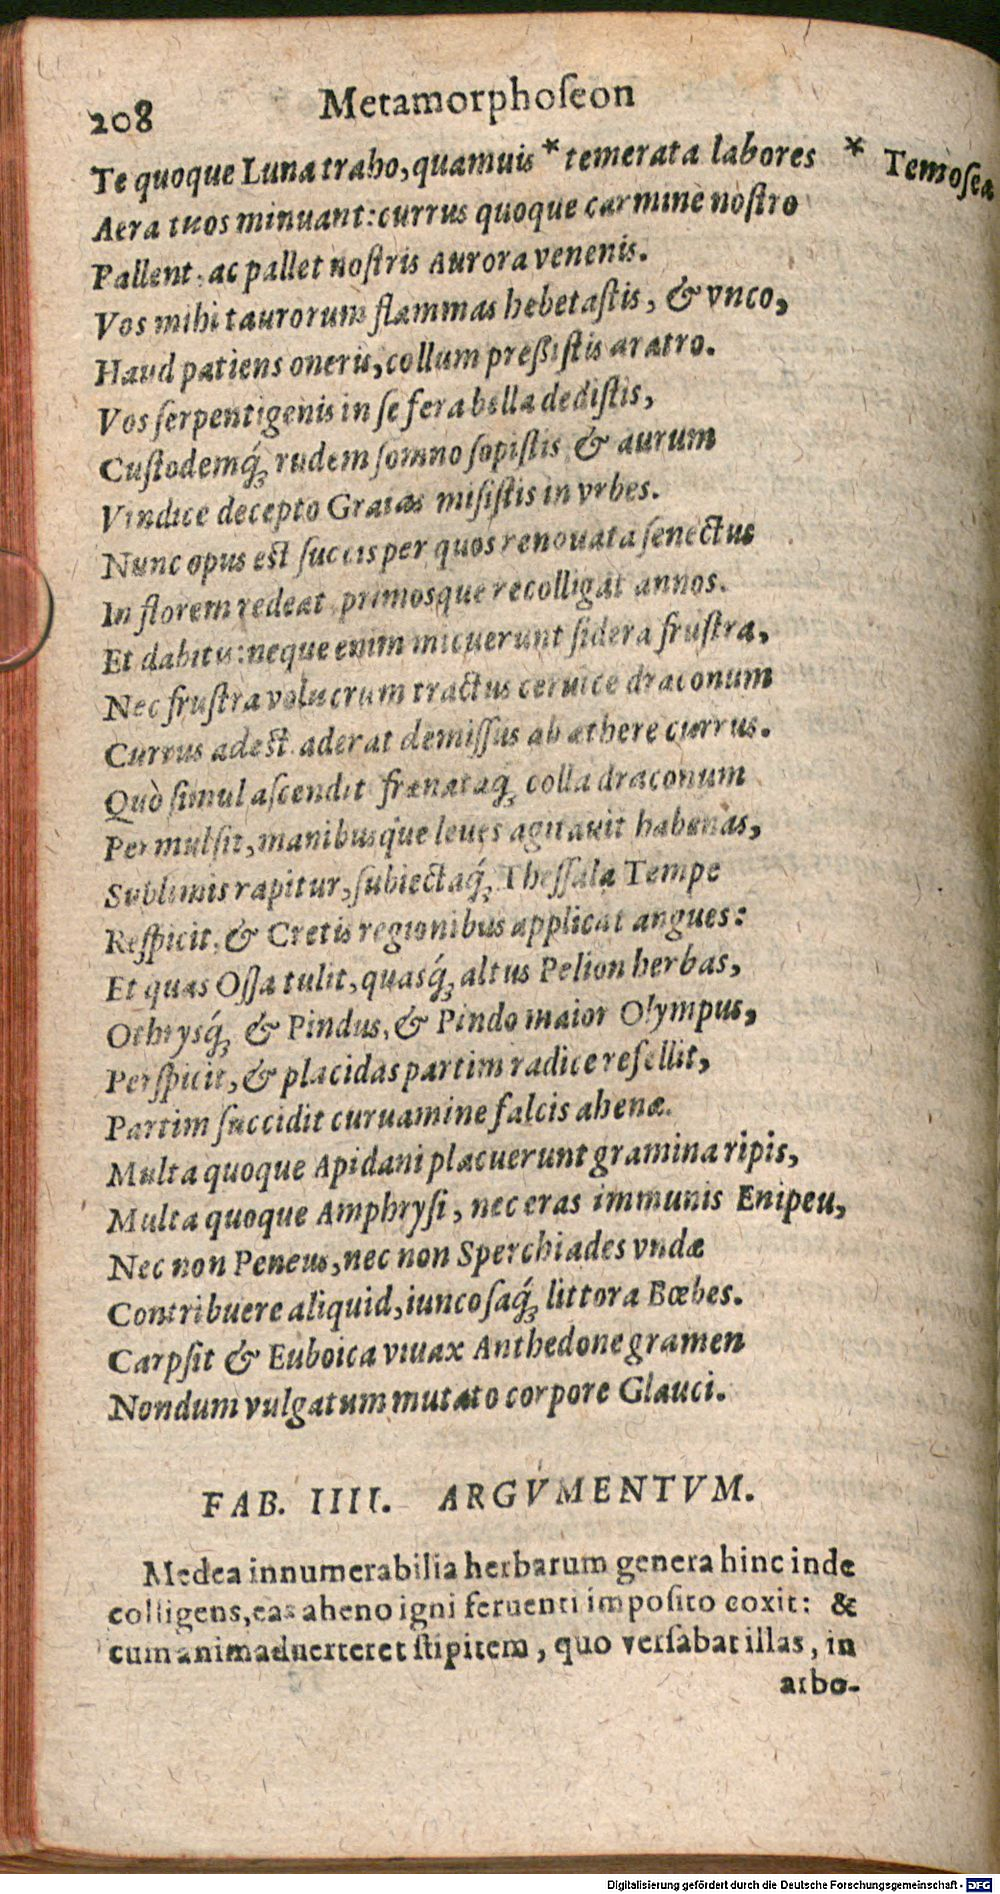 208 Metamorphoſeon
Te quoque Luna traho, quamuis * temerata labores * Temoſea
Aera tuos minuant: currus quoque carmine noſtro
Pallent: ac pallet noſtris Aurora venenis.
Vos mihi taurorum flammas hebetaſtis, & vnco,
Haud patiens oneris, collum preßiſtis aratro.
Vos ſerpentigenis in ſe fera bella dediſtis,
Cuſtodemq́; rudem ſomno ſopiſtis & aurum
Vindice decepto Graias miſiſtis in vrbes.
Nunc opus est ſuccis per quos renouata ſenectus
In florem redeat, primosque recolligat annos.
Et dabitis: neque enim micuerunt ſidera fruſtra,
Nec fruſtra volucrum tractus ceruice draconum
Currus adest. aderat demiſſus ab æthere currus.
Quò ſimul aſcendit frænataq́; colla draconum
Permulſit, manibusque leues agitauit habenas,
Sublimis rapitur, ſubiectaq́; Theſſala Tempe
Reſpicit, & Cretis regionibus applicat angues:
Et quas Oſſa tulit, quasq́; altus Pelion herbas,
Othrysq́; & Pindus, & Pindo maior Olympus,
Perſpicit, & placidas partim radice reſellit,
Partim ſuccidit curuamine falcis ahenæ.
Multa quoque Apidani placuerunt gramina ripis,
Multa quoque Amphryſi, nec eras immunis Enipeu,
Nec non Peneus, nec non Sperchiades vndæ
Contribuere aliquid, iuncoſaq́; littora Bœbes.
Carpſit & Euboica viuax Anthedone gramen
Nondum vulgatum mutato corpore Glauci.
FAB. IIII. ARGVMENTVM.
Medea innumerabilia herbarum genera hinc inde
colligens, eas aheno igni feruenti impoſito coxit: &
cum animaduerteret ſtipitem, quo verſabat illas, in
arbo-
Digitalisierung gefördert durch die Deutsche Forschungsgemeinschaft - DFG